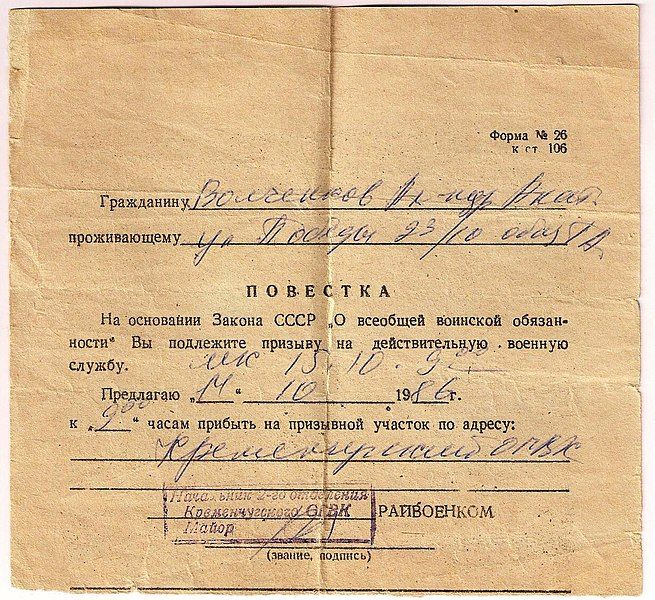 Форма № 26
к ст 106
Гражданину Волченков Ал-ндр Анат
проживающему ул Победы 23/10 общ
ПОВЕСТКА
На основании Закона СССР „О всеобщей воинской обязан-
ности“ Вы подлежите призыву на действительную военную
службу. МК 15.10. 9 00
Предлагаю „ “ 10 1986 г.
к „9 00“ часам прибыть на призывной участок по адресу:
Кременчугский ОГВК
Начальник 2-го отделения
Кременчугского ОГВК РАЙВОЕНКОМ
Майор
(звание, подпись)